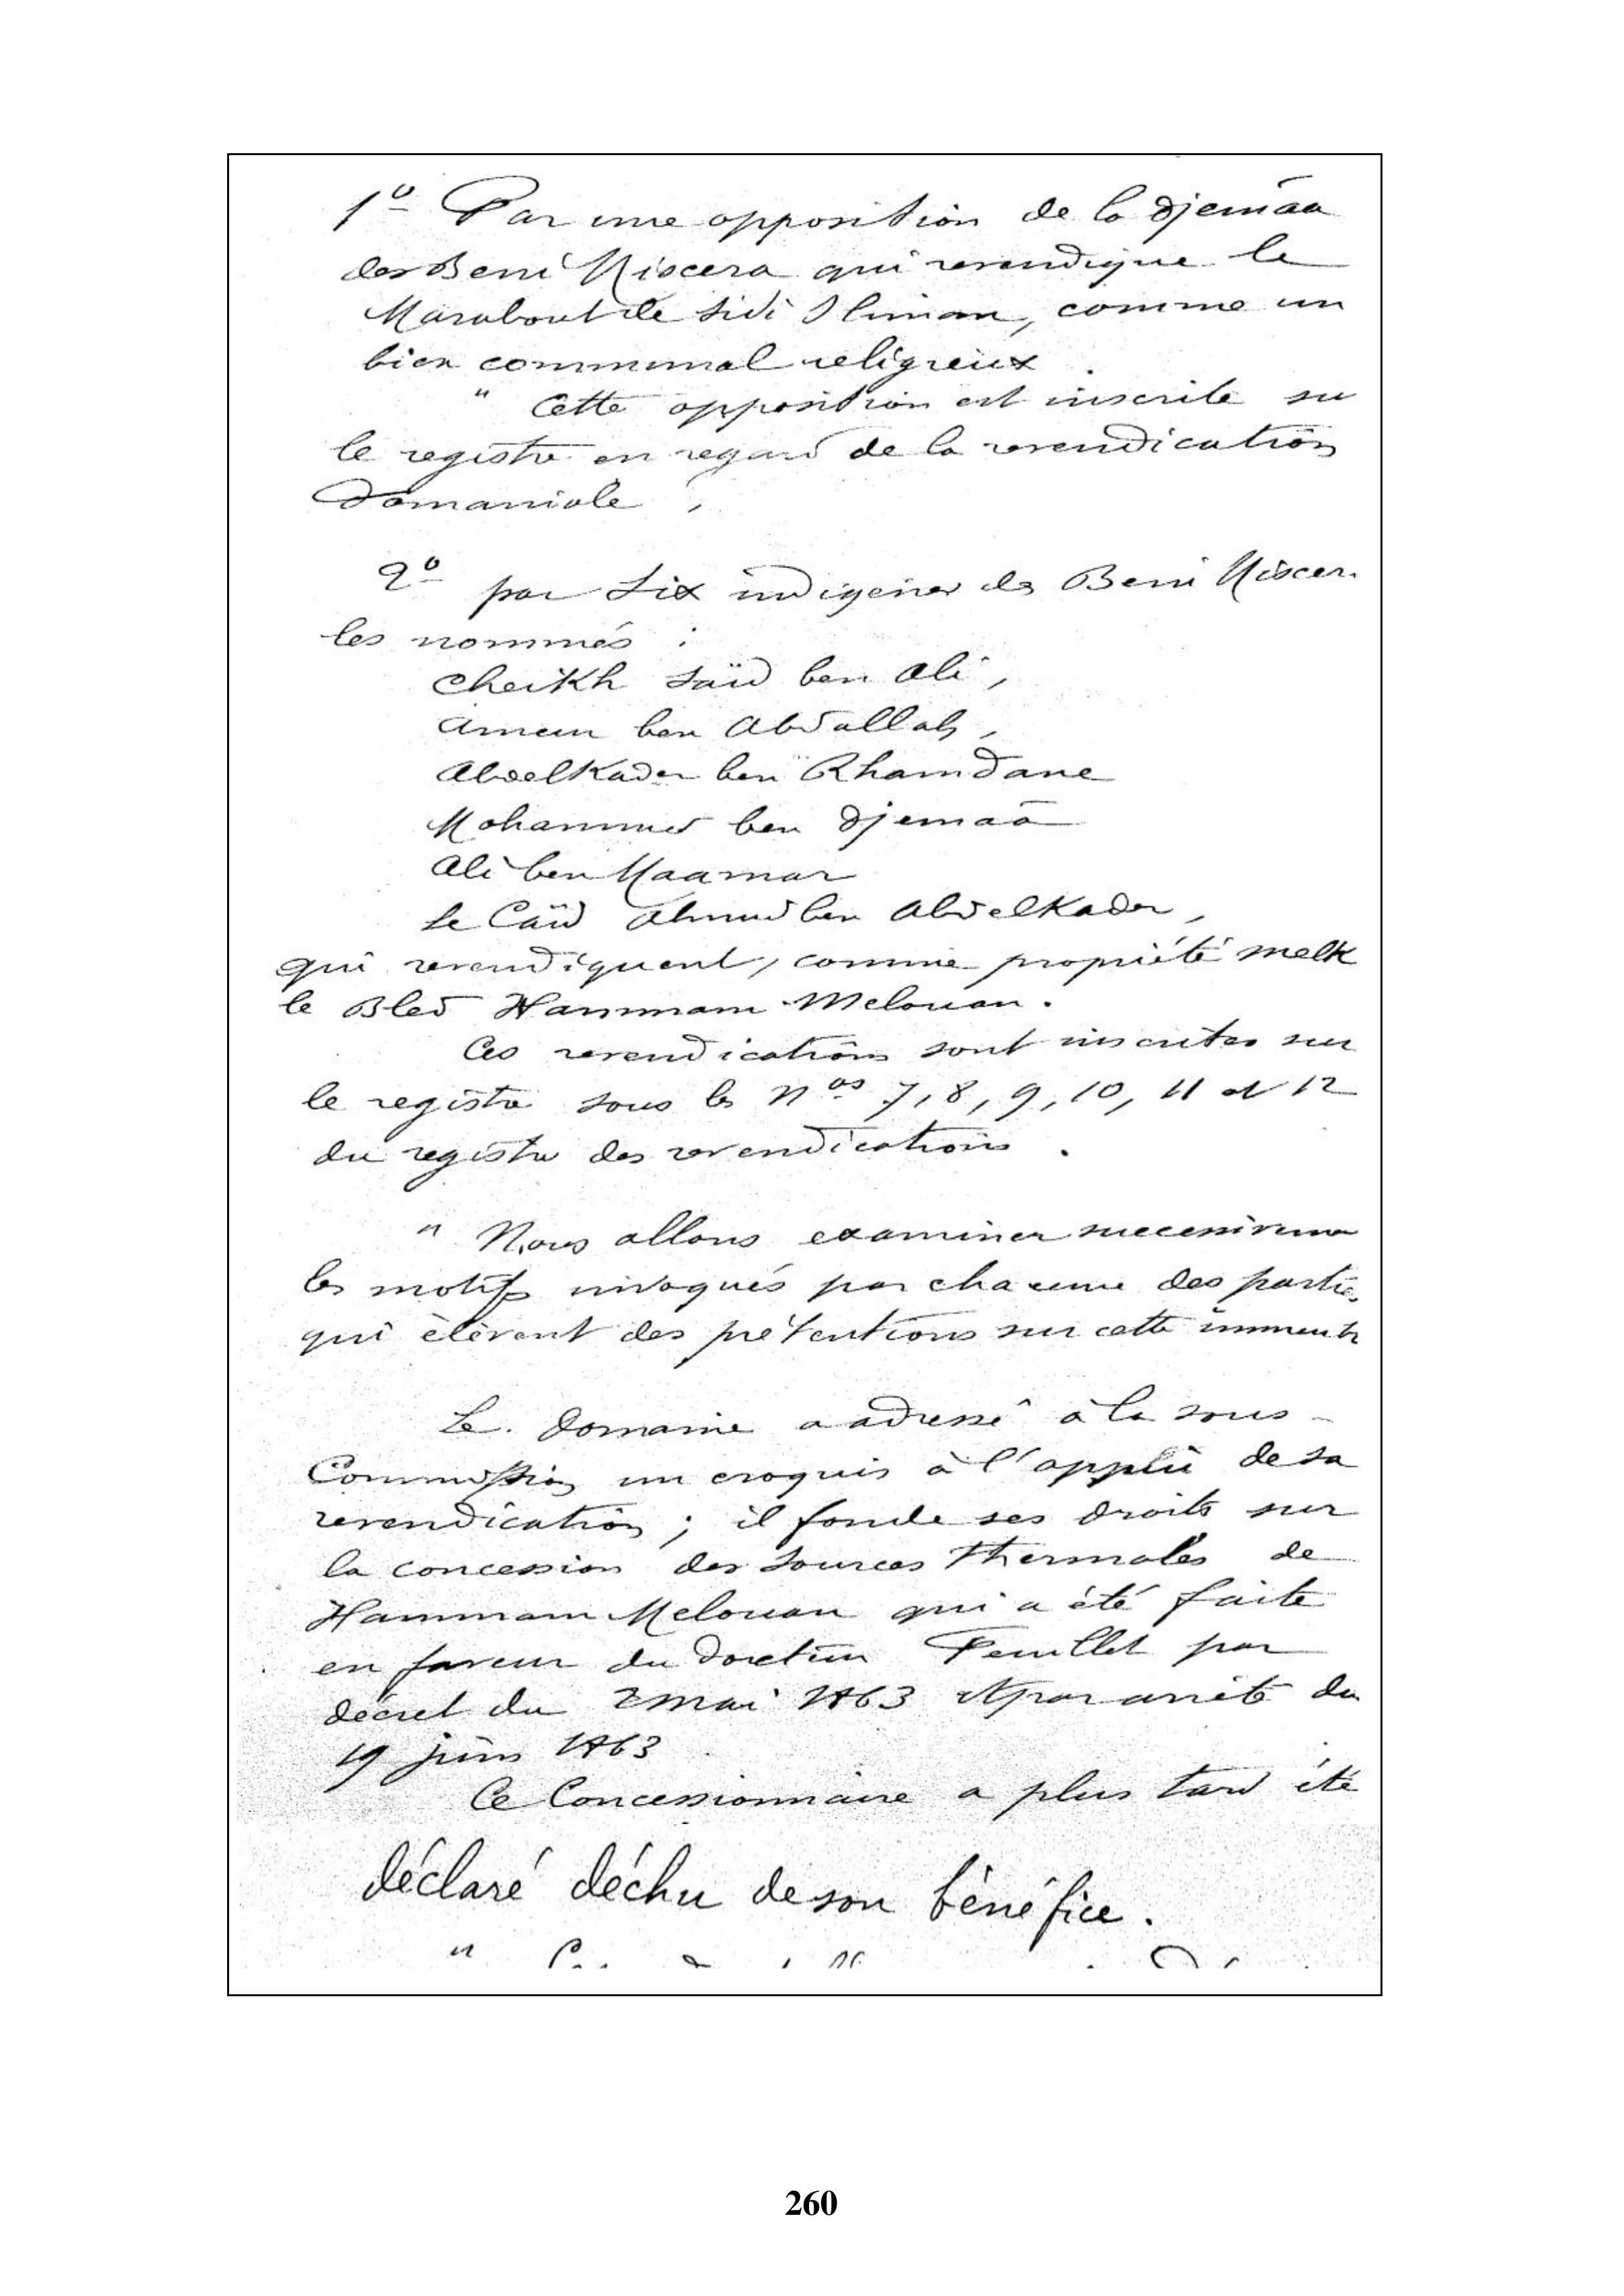 1º Par une opposition de la Djemâa
des Beni Miscera qui revendique le
Marabout de Sidi Sliman, comme un
bien communal religieux.
" Cette opposition est inscrite sur
le registre en regard de la revendication
Domaniale,
2º par six indigènes des Beni Miscera
les nommés :
Cheikh Saïd ben Ali,
Ameur ben Abdallah,
Abdelkader ben Rhamdane
Mohammed ben Djemaâ
Ali ben Maamar
le Caïd Ahmed ben Abdelkader,
qui revendiquent, comme propriété melk
le Bled Hammam Melouan.
Ces revendications sont inscrites sur
le registre sous les Nos 7, 8, 9, 10, 11 et 12
du registre des revendications.
" Nous allons examiner successivement
les motifs invoqués par chacune des parties
qui élèvent des prétentions sur cette immeuble
Le Domaine a adressé à la sous-
Commission un croquis à l'appui de sa
revendication ; il fonde ses droits sur
la concession des sources thermales de
Hammam Melouan qui a été faite
en faveur du docteur Feuillet par
décret du 2 mai 1863 et par arrêté du
19 juin 1863
Ce Concessionnaire a plus tard été
déclaré déchu de son bénéfice.
260